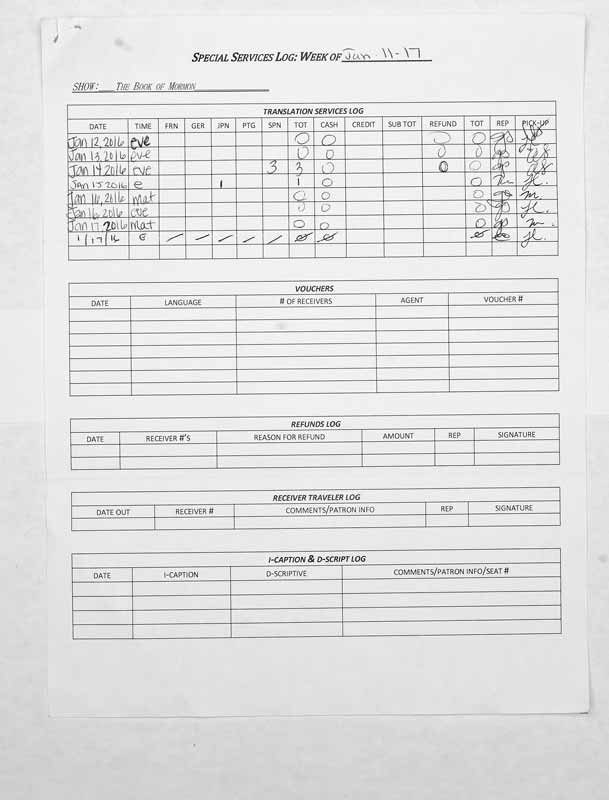 SPECIAL SERVICES LOG: WEEK OF Jan 11-17
SHOW: THE BOOK OF MORMON
TRANSLATION SERVICES LOG
DATE TIME FRN GER JPN PTG SPN TOT CASH CREDIT SUB TOT REFUND TOT REP PICK-UP
Jan 12, 2016 eve 0 0 0 0
Jan 13, 2016 eve 0 0 0 0
Jan 14 2016 eve 3 3 0 0 0
Jan 15 2016 e 1 1 0 0
Jan 16, 2016 mat 0 0 0
Jan 16 2016 eve 0 0 0
Jan 17, 2016 mat 0 0 0
1/17/16 E / / / / / Ø Ø Ø
VOUCHERS
DATE LANGUAGE # OF RECEIVERS AGENT VOUCHER #
REFUNDS LOG
DATE RECEIVER #'S REASON FOR REFUND AMOUNT REP SIGNATURE
RECEIVER TRAVELER LOG
DATE OUT RECEIVER # COMMENTS/PATRON INFO REP SIGNATURE
I-CAPTION & D-SCRIPT LOG
DATE I-CAPTION D-SCRIPTIVE COMMENTS/PATRON INFO/SEAT #